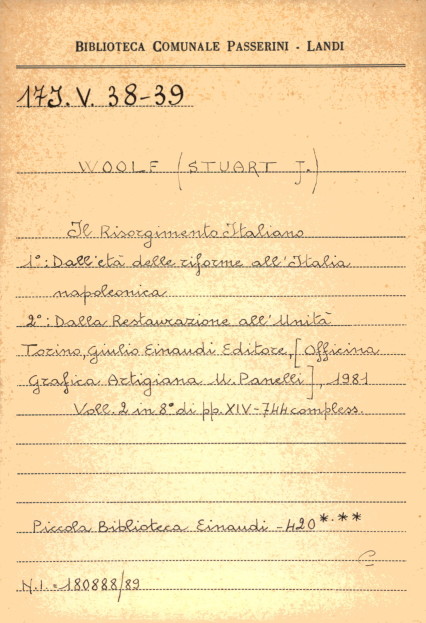 BIBLIOTECA COMUNALE PASSERINI - LANDI
17J.V. 38-39
WOOLF (STUART J.)
Il Risorgimento Italiano
1°: Dall'età delle riforme all'Italia
napoleonica
2°: Dalla Restaurazione all'Unità
Torino, Giulio Einaudi Editore, [Officina
Grafica Artigiana U. Panelli], 1981
Voll. 2 in 8° di pp. XIV-744 compless.
Piccola Biblioteca Einaudi - 420*.**
N.I. = 180888/89